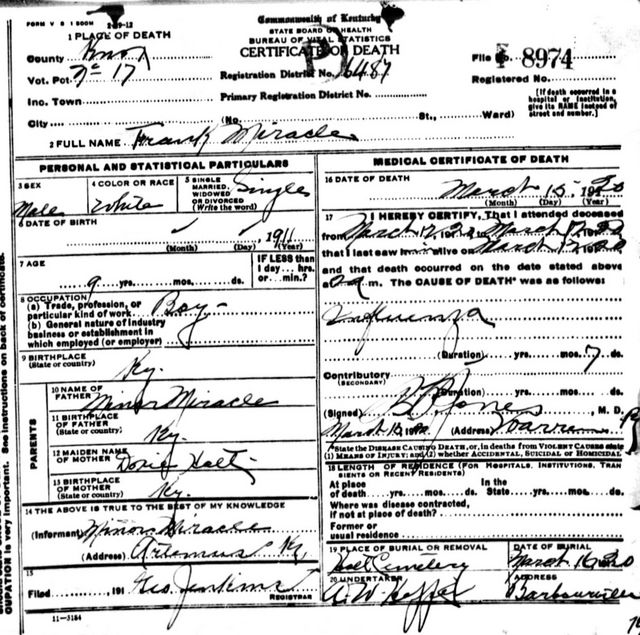 FORM V S 1 500M 2-29-12
Commonwealth of Kentucky
STATE BOARD OF HEALTH
BUREAU OF VITAL STATISTICS
CERTIFICATE OF DEATH
1 PLACE OF DEATH
County Knox
Vot. Pct No 17
Inc. Town
City (No. St., Ward)
File 8974
Registration District No. 6487
Registered No.
Primary Registration District No.
(If death occurred in a hospital or institution, give its NAME instead of street and number.)
2 FULL NAME Frank Miracle
PERSONAL AND STATISTICAL PARTICULARS
3 SEX Male
4 COLOR OR RACE White
5 SINGLE MARRIED, WIDOWED OR DIVORCED (Write the word) Single
6 DATE OF BIRTH 1911
(Month) (Day) (Year)
7 AGE 9 yrs. mos. ds.
IF LESS than 1 day... hrs. or... min.?
8 OCCUPATION
(a) Trade, profession, or particular kind of work Boy
(b) General nature of industry business or establishment in which employed (or employer)
9 BIRTHPLACE (State or country) Ky.
PARENTS
10 NAME OF FATHER Minor Miracle
11 BIRTHPLACE OF FATHER (State or country) Ky.
12 MAIDEN NAME OF MOTHER Holt
13 BIRTHPLACE OF MOTHER (State or country) Ky.
14 THE ABOVE IS TRUE TO THE BEST OF MY KNOWLEDGE
(Informant) Minor Miracle
(Address) Artemus Ky
15 Filed 191 Geo. Jenkins
REGISTRAR
11-3184
MEDICAL CERTIFICATE OF DEATH
16 DATE OF DEATH March 15 1920
(Month) (Day) (Year)
17 I HEREBY CERTIFY, That I attended deceased
from March 12 20 March 12 20
that I last saw him alive on March 12 1920
and that death occurred on the date stated above
a m. The CAUSE OF DEATH* was as follows:
Influenza
(Duration) yrs. mos. 7 ds.
Contributory
(SECONDARY)
(Duration) yrs. mos. ds.
(Signed) Jones M. D.
March 16 19 (Address) Warren
*State the DISEASE CAUSING DEATH, or, in deaths from VIOLENT CAUSES state
(1) MEANS OF INJURY; and (2) whether ACCIDENTAL, SUICIDAL or HOMICIDAL
18 LENGTH OF RESIDENCE (FOR HOSPITALS, INSTITUTIONS, TRANSIENTS OR RECENT RESIDENTS)
At place of death yrs. mos. ds. In the State yrs. mos. ds.
Where was disease contracted, if not at place of death?
Former or usual residence
19 PLACE OF BURIAL OR REMOVAL Holt Cemetery
DATE OF BURIAL March 16 20
20 UNDERTAKER A. W. Hopper
ADDRESS Barbourville
OUPATION is very important. See instructions on back of certificate.